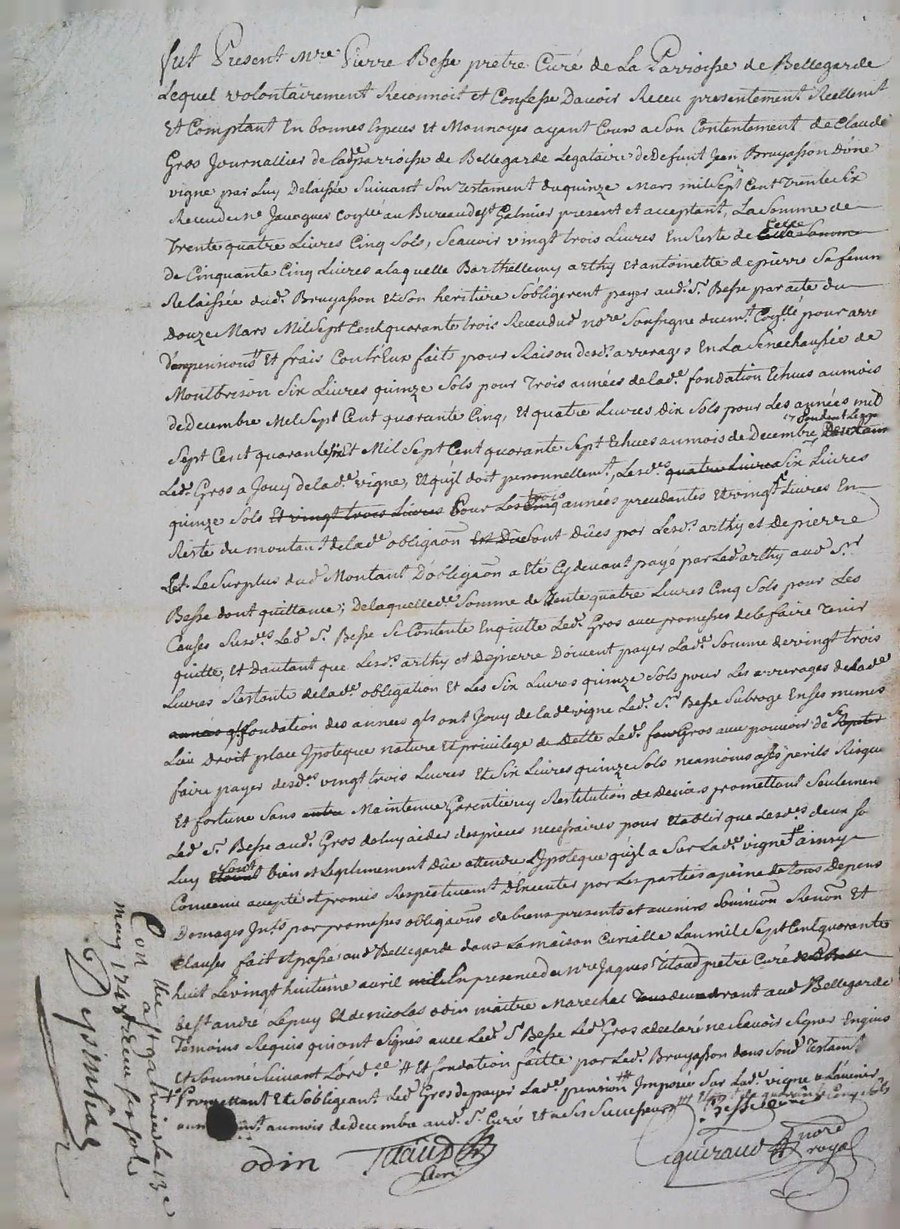 fut Present Mre Pierre Besse pretre Curé de La Parroisse de Bellegarde
Lequel volontairement Reconnoit et Confesse Davoir Receu presentement Reellemt
Et Comptant En bonnes Especes et Monnoyes ayant Cours a Son Contentement de Claude
Gros Journallier de lade parroisse de Bellegarde Legataire de Defunt Jean Bruyasson D'une
vigne par Luy Delaissée Suivant Son Testament du quinze Mars mil Sept Cent Trente Six
Receu de Me au Bureau de St Galmier present et acceptant, La Somme de
Trente quatre Livres Cinq Sols, Scavoir vingt trois Livres En Reste de Celle
de Cinquante Cinq Livres a laquelle Barthellemy arthy Et antoinette depierre Sa femme
Relaissée dud. Bruyasson Et Son heritiere Sobligerent payer aud. Sr. Besse par acte du
Douze Mars Mil Sept Cent quarante trois Receu dud nore Soussigné pour arre
Et frais Contr'Eux fait pour Raison desd. arrerages En La Senechaussée de
Montbrison Six Livres quinze Sols pour Trois années de lade. fondation Echues au mois
de Decembre Mil Sept Cent quarante Cinq, Et quatre Livres Dix Sols pour Les années mil
Sept Cent quarante Six Et Mil Sept Cent quarante Sept Echues au mois de Decembre
Led. Gros a Jouy de lade. vigne, Et qu'il doit personnellemt, Lesdes. quatre Livres Six Livres
quinze Sols Et vingt trois Livres pour Les trois années precedentes Et vingt Livres En
Reste du montant de lade obligaon Sont Dües par Lesd. arthy et Depierre
Le Surplus dud Montant D'obligaon a Eté Cy devant payé par Led arthy aud Sr.
Besse dont quittance; De laquelle de. Somme de Trente quatre Livres Cinq Sols pour Les
Causes Susdes Led. Sr. Besse Se Contente En quitte Led. Gros aux promesses de le faire Tenir
quitte, Et Dautant que Lesd. arthy et Depierre Doivent payer Lade. Somme de vingt trois
Livres Restante de lade. obligation Et Les Six Livres quinze Sols pour Les arrerages de lade
fondation des années qls ont Jouy de lade vigne Led. Sr. Besse Subroge En Ses mêmes
Lieu Droit place Ypoteque nature Et privilege de Dette Led. Gros aux pouvoir de Se
faire payer desdes. vingt trois Livres Et Six Livres quinze Sols neamoins a Ses perils Risque
Et fortune Sans Maintenue Garentie ny Restitution de Deniers promettant Seulement
Led. Sr. Besse aud. Gros de luy aider des pieces necessaires pour Etablir que Lesdes. deux So
Luy Sont bien et Legitimement Düe attendu L'ypoteque qu'il a Sur Lade. vigne ainsy
Convenu accepté et promis Respectivemt D'Executer par Les parties a peine de tous Depens
Domages Ints par promesses obligaons de biens presents et avenirs Soumission Renon Et
Clauses fait et passé aud Bellegarde dans La maison Curialle L'an mil Sept Cent quarante
huit Le vingt huitième avril En presence de Mre Jaques Titaud pretre Curé
de St. andré Le puy Et de nicolas odin maitre Marechal aud Bellegarde
Temoins Requis qui ont Signés avec Led. Sr. Besse Led. Gros a declaré ne Scavoir Signer Enquis
Et Sommé Suivant L'ord ce # Et fondation faitte par Led. Bruyasson dans Sond. Testamt
Promettant Et S'obligeant Led. Gros de payer Lade. pension Imposée Sur Lade. vigne a Lavenir
au mois de Decembre aud. Sr. Curé Et a Ses Successeurs
odin
Titaud
Curé
Besse Curé
quiraud nore
royal
Con
the a St galmier le 13e
may 1748 receu